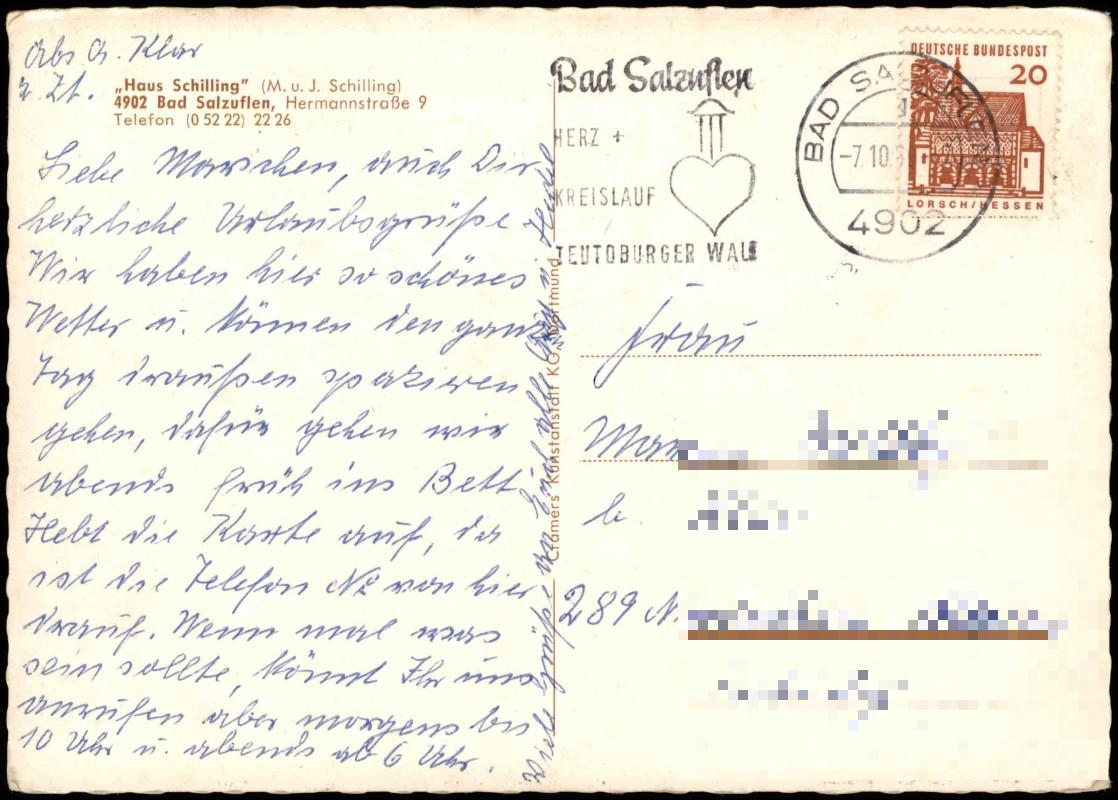 Abs A. Klar
z. Zt.
„Haus Schilling" (M. u. J. Schilling)
4902 Bad Salzuflen, Hermannstraße 9
Telefon (0 52 22) 22 26
Liebe Mariechen, auch Dir
herzliche Urlaubsgrüße.
Wir haben hier so schönes
Wetter u. können den ganzen
Tag draußen spazieren
gehen, dafür gehen wir
abends früh ins Bett.
Hebt die Karte auf, da
ist die Telefon Nr von hier
drauf. Wenn mal was
sein sollte, könnt Ihr uns
anrufen aber morgens bis
10 Uhr u. abends ab 6 Uhr.
Viele Grüße an Euch alle
Cramers Kunstanstalt KG, Dortmund
Bad Salzuflen
HERZ +
KREISLAUF
TEUTOBURGER WALD
BAD SALZUFLEN
-7.10.
4902
DEUTSCHE BUNDESPOST
20
LORSCH/HESSEN
Frau
b.
289 N.